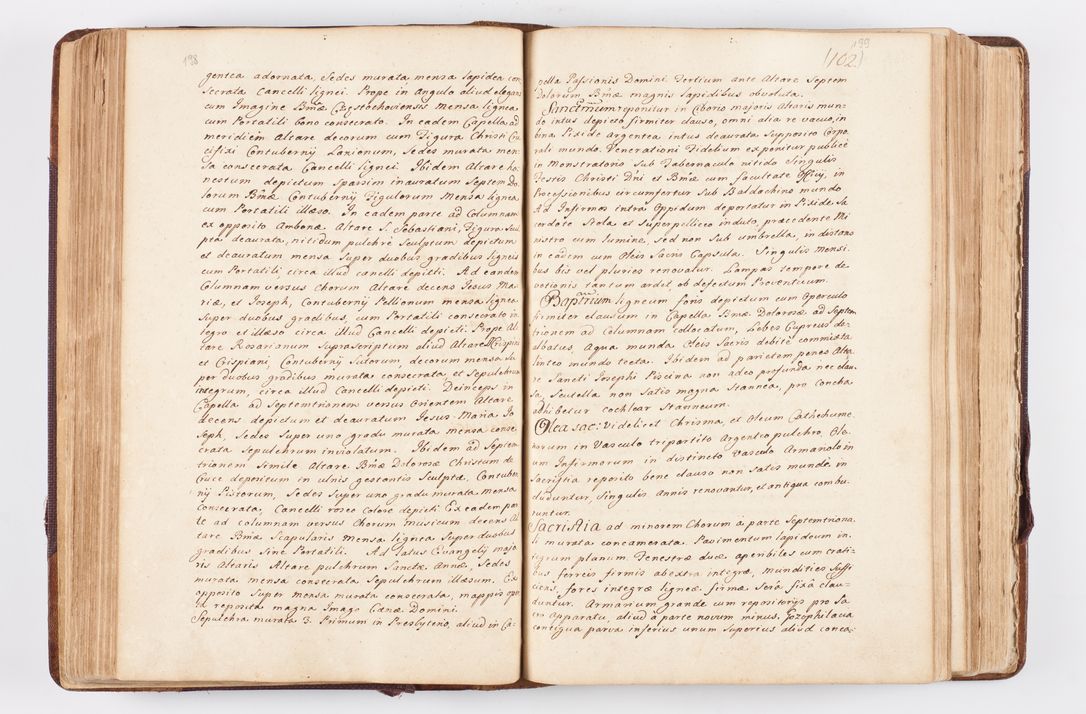 198
gentea adornata, Sedes murata mensa lapidea con-
secrata Cancelli lignei. Prope in angulo aliud elegans
cum Imagine Bmæ Częstochoviensis mensa lignea
cum Portatili bono consecrato. In eadem Capella ad
meridiem Altare decorum cum Figura Christi Cru
cifixi Contubernij Lanionum, Sedes murata men:
sa consecrata Cancelli lignei Ibidem Altare ho
nestum depictum Sparsim inauratum Septem Do
lorum Bmæ Contubernij Figulorum Mensa lignea
cum Portatili illæso. In eadem parte ad Columnam
ex opposito Ambonæ Altare S. Sebastiani, Figura Scul
pta deaurata, nitidum pulchrè Sculptum depictum
et deauratum mensa Super duobus gradibus ligneis
cum Portatili, circa illud cancelli depicti. Ad eandem
Columnam versus Chorum Altare decens Jesus Ma
riæ, et Joseph, Contubernij Pellionum mensa lignea
Super duobus gradibus, cum Portatili consecrato in
tegro et illæso circa illud Cancelli depicti. Prope Al
tare Rosarianum Suprascriptum aliud Altare Crispini
et Crispiani, Contubernij Sutorum, decorum mensa Su
per duobus gradibus murata consecrata et Sepulchrum
integrum, circa illud Cancelli depicti. Deinceps in
Capella ad Septemtrionem versus Orientem Altare
decens depictum et deauratum Jesus Maria Jo
seph, Sedes Super uno gradu murata mensa conse
crata Sepulchrum inviolatum. Ibidem ad Septem
trionem Simile Altare Bmæ Dolorosæ Christum de
Cruce depositum in ulnis gestantis Sculptæ, Contuber
nij Pistorum, Sedes Super uno gradu murata mensa
consecrata, Cancelli roseo colore depicti Ex eadem par
te ad columnam versus Chorum musicum decens Al
tare Bmæ Scapularis mensa lignea Super duobus
gradibus Sine Portatili. Ad latus Evangelij majo
ris Altaris Altare pulchrum Sanctæ Annæ, Sedes
murata mensa consecrata Sepulchrum illæsum. Ex
opposito Super mensa murata consecrata, mappis
reposita magna Imago Cænæ Domini.
Sepulchra murata 3. Primum in Presbyterio, aliud in Ca:
199
(102)
pella Passionis Domini Tertium ante Altare Septem
Dolorum Bmæ magnis lapidibus obvoluta.
Sanctmum reponitur in Ciborio majoris Altaris mun=
do intus depicto firmiter clauso, omni alia re vacuo, in
bina Pixide argentea intus deaurata Supposito Corpo
rali mundo. Venerationi Fidelium exponitur publicè
in Monstratorio Sub Tabernaculo nitido Singulis
Festis Christi Dni et Bmæ cum facultate Officij, in
Processionibus circumfertur Sub Baldachino mundo
Ad Infirmos intra Oppidum deportatur in Pixide Sa
cerdote Stola et Superpelliceo induto, præcedente Mi
nistro cum lumine, sed non Sub umbrella, in distans
in eadem cum Oleis Sacris Capsula. Singulis Mensi.
bus bis vel pluries renovatur. Lampas tempore de
votionis tantum ardet, ob defectum Proventuum.
Baptrium ligneum foris depictum cum Operculo
firmiter clausum in Capella Bmæ Dolorosæ ad Septem
trionem ad Columnam collocatum, Lebes Cupreus de-
albatus, Aqua munda Oleis Sacris debitè commixta
linteo mundo tecta. Ibidem ad parietem penes Alta
re Sancti Josephi Piscina non adeo profunda nec clau
sa, Scutella non Satis magna Stannea, pro Concha
adhibetur cochlear Stanneum.
Olea sac: Videlicet Chrisma, et Oleum Cathechume
norum in Vasculo tripartito Argenteo pulchro, Ole:
um Infirmorum in distincto Vasculo Armariolo in
Sacristia reposito bene clauso non Satis mundè, in
cluduntur, Singulis Annis renovantur, et antiqua combu.
runtur.
Sacristia ad minorem Chorum à parte Septemtriona
li murata concamerata. Pavimentum lapideum in.
tegrum planum. Fenestræ duæ aperibiles cum crati=
bus ferreis firmis ab extra integræ, mundities Suffi
ciens, fores integræ ligneæ firmæ, Serâ fixâ clau=
duntur. Armarium grande cum repositorijs pro Sa
cro Apparatu, aliud à parte novum minus. Gozophilacia
contigua parva inferius unum Superius aliud conca: